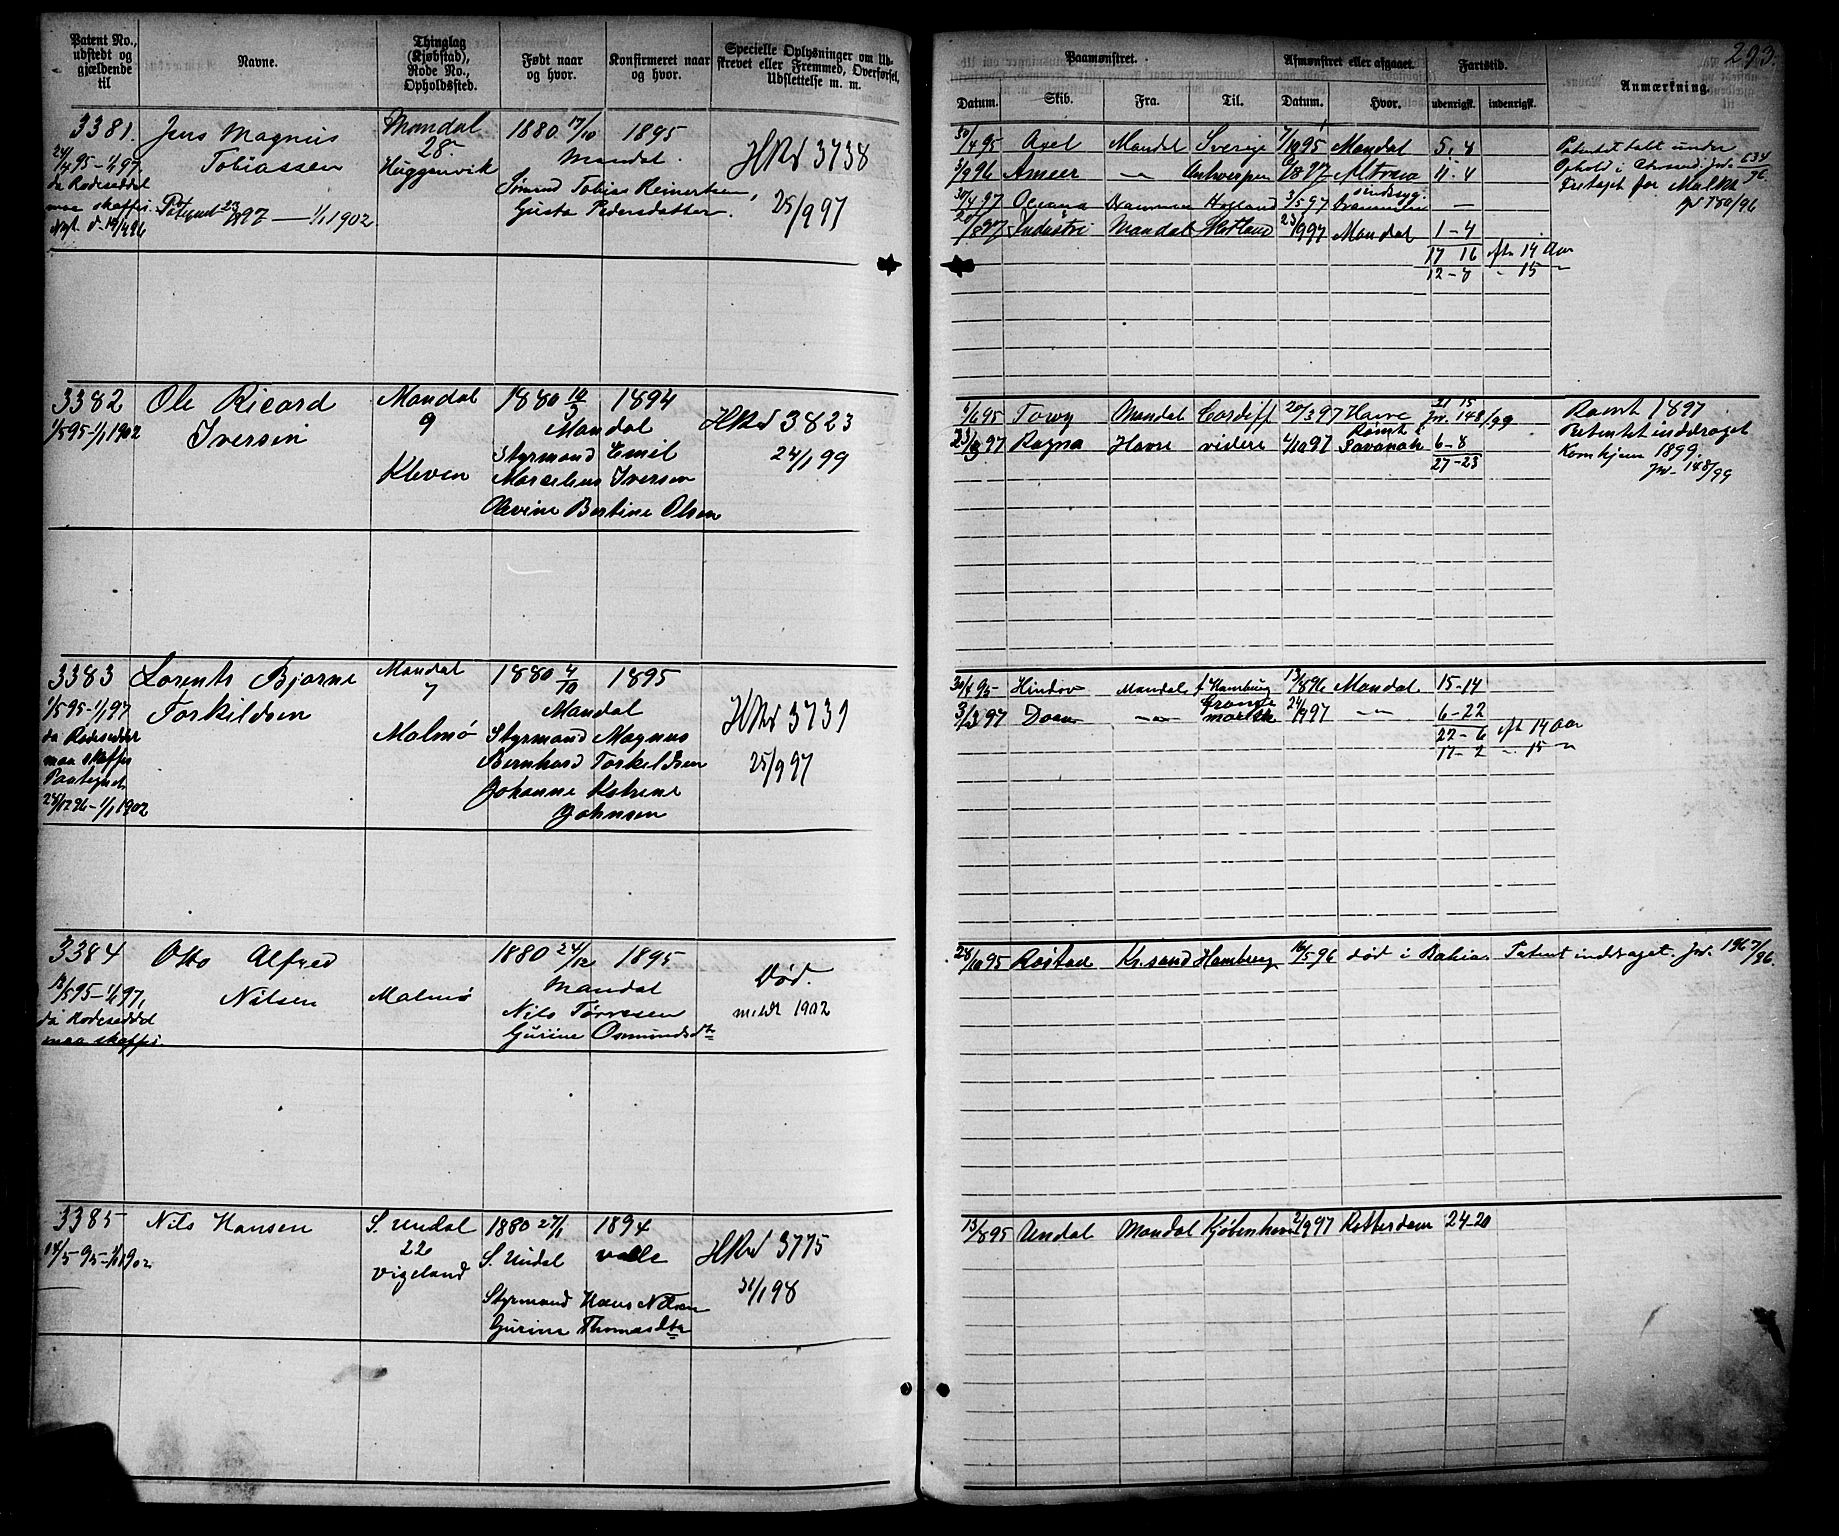 293.
Patent No., udstedt og gjældende til
Navne.
Thinglag (Kjøbstad), Rode No., Opholdssted.
Født naar og hvor.
Konfirmeret naar og hvor.
Specielle Oplysninger om Udskrevet eller Fremmed, Overførsel, Udslettelse m. m.
Paamønstret.
Afmønstret eller afgaaet.
Fartstid.
Anmærkning.
Datum.
Skib.
Fra.
Til.
Datum.
Hvor.
udenrigsk.
indenrigsk.
3381.
24/4 95 - 1/1 97
da Rodeseddel
maa skaffes.
Jens Magnus
Tobiassen
1/1 1902
Mandal
28
Huggenvik
1880 17/10 1895
Mandal.
Tobias Reinertsen
Gusta Pedersdatter.
HRd 3738
25/9 97
30/4 95 Axel Mandal Sverige 7/10 95 Mandal 5-4
Ameer Antwerpen 11-4
30/4 97 Oceana Holland 3/5 97
Industri Mandal 23/9 97 Mandal 1-4
17 16 eft. 14 Aar
12-7 " 15 "
Patentet tabt under
3382
1/5 95-1/1 1902
Ole Ricard
Iversen
Mandal
9
Kleven
1880 14/9 1894
Mandal
Styrmand Emil
Marselius Iversen
Olevine Bertine Olsen
HRd 3823
24/1 99
1/6 95 Towy Mandal Cardiff 20/3 97 Havre 21 15 Jr. 148/99
23/3 97 Ragna Havre videre 4/10 97 Rømt i Savanah 6-8
27-23
Rømt 1897
Patentet inddraget
Kom hjem 1899.
Jr. 148/99
3383
1/5 95-1/1 97
da Rodeseddel
maa skaffes
Paategnet
28/12 96-1/1 1902
Lorents Bjarne
Torkildsen
Mandal
7
Malmø
1880 4/10 1895
Mandal
Styrmand Magnus
Bernhard Torkildsen
Johanne Katrine
Johnsen
HRd 3739
25/9 97
30/4 95 Hindoo Mandal f. Hamburg 13/8 96 Mandal 15-14
3/3 97 24/9 97 6-22
22-6 eft. 14 Aar
17-2 " 15 "
3384
13/5 95-1/1 97,
da Rodeseddel
maa skaffes.
Otto Alfred
Nilsen
Malmø
1880 24/12 1895
Mandal
Nils Tørresen
Gurine Osmundsdtr
Død.
meldt 1902
28/10 95 Røstad Kr.sand Hamburg 16/5 96 død i Bahia. Patent inddraget. Jr. 1967/96.
3385
14/5 95-1/1 1902
Nils Hansen
S. Undal
22
Vigeland
1880 27/1 1894
S. Undal Valle
Styrmand Hans Nilsen
Gurine Thomasdtr
HRd 3775
31/1 98
13/8 95 Undal Mandal Kjøbenhavn 2/9 97 Rotterdam 24-20